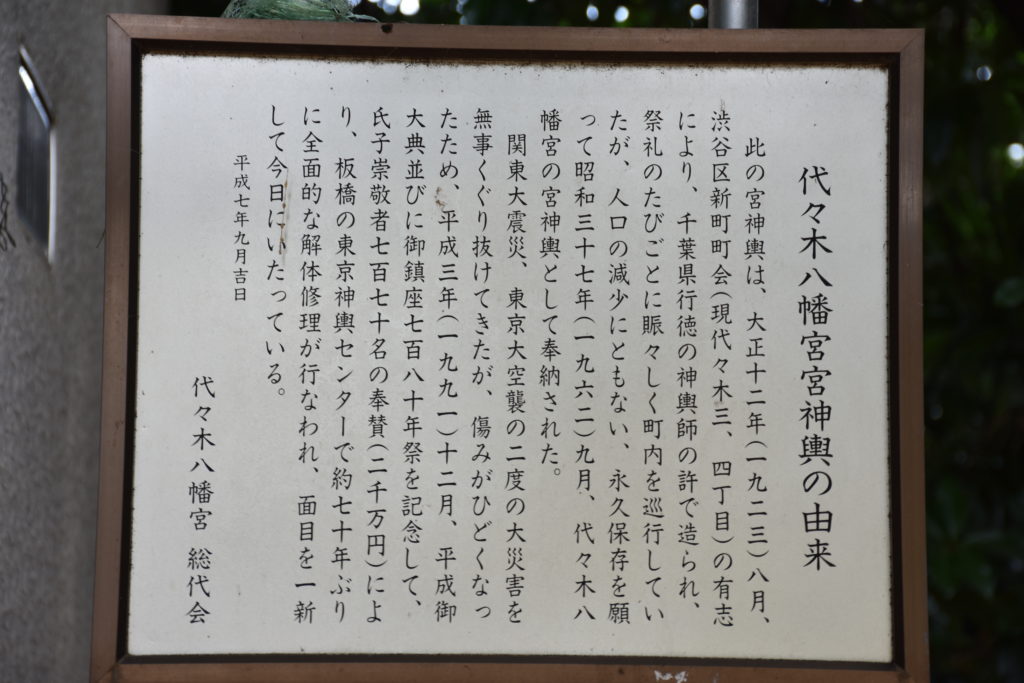 代々木八幡宮宮神輿の由来
此の宮神輿は、大正十二年(一九二三)八月、
渋谷区新町町会(現代々木三、四丁目)の有志
により、千葉県行徳の神輿師の許で造られ、
祭礼のたびごとに賑々しく町内を巡行してい
たが、人口の減少にともない、永久保存を願
って昭和三十七年(一九六二)九月、代々木八
幡宮の宮神輿として奉納された。
関東大震災、東京大空襲の二度の大災害を
無事くぐり抜けてきたが、傷みがひどくなっ
たため、平成三年(一九九一)十二月、平成御
大典並びに御鎮座七百八十年祭を記念して、
氏子崇敬者七百七十名の奉賛(二千万円)によ
り、板橋の東京神輿センターで約七十年ぶり
に全面的な解体修理が行なわれ、面目を一新
して今日にいたっている。
平成七年九月吉日
代々木八幡宮 総代会